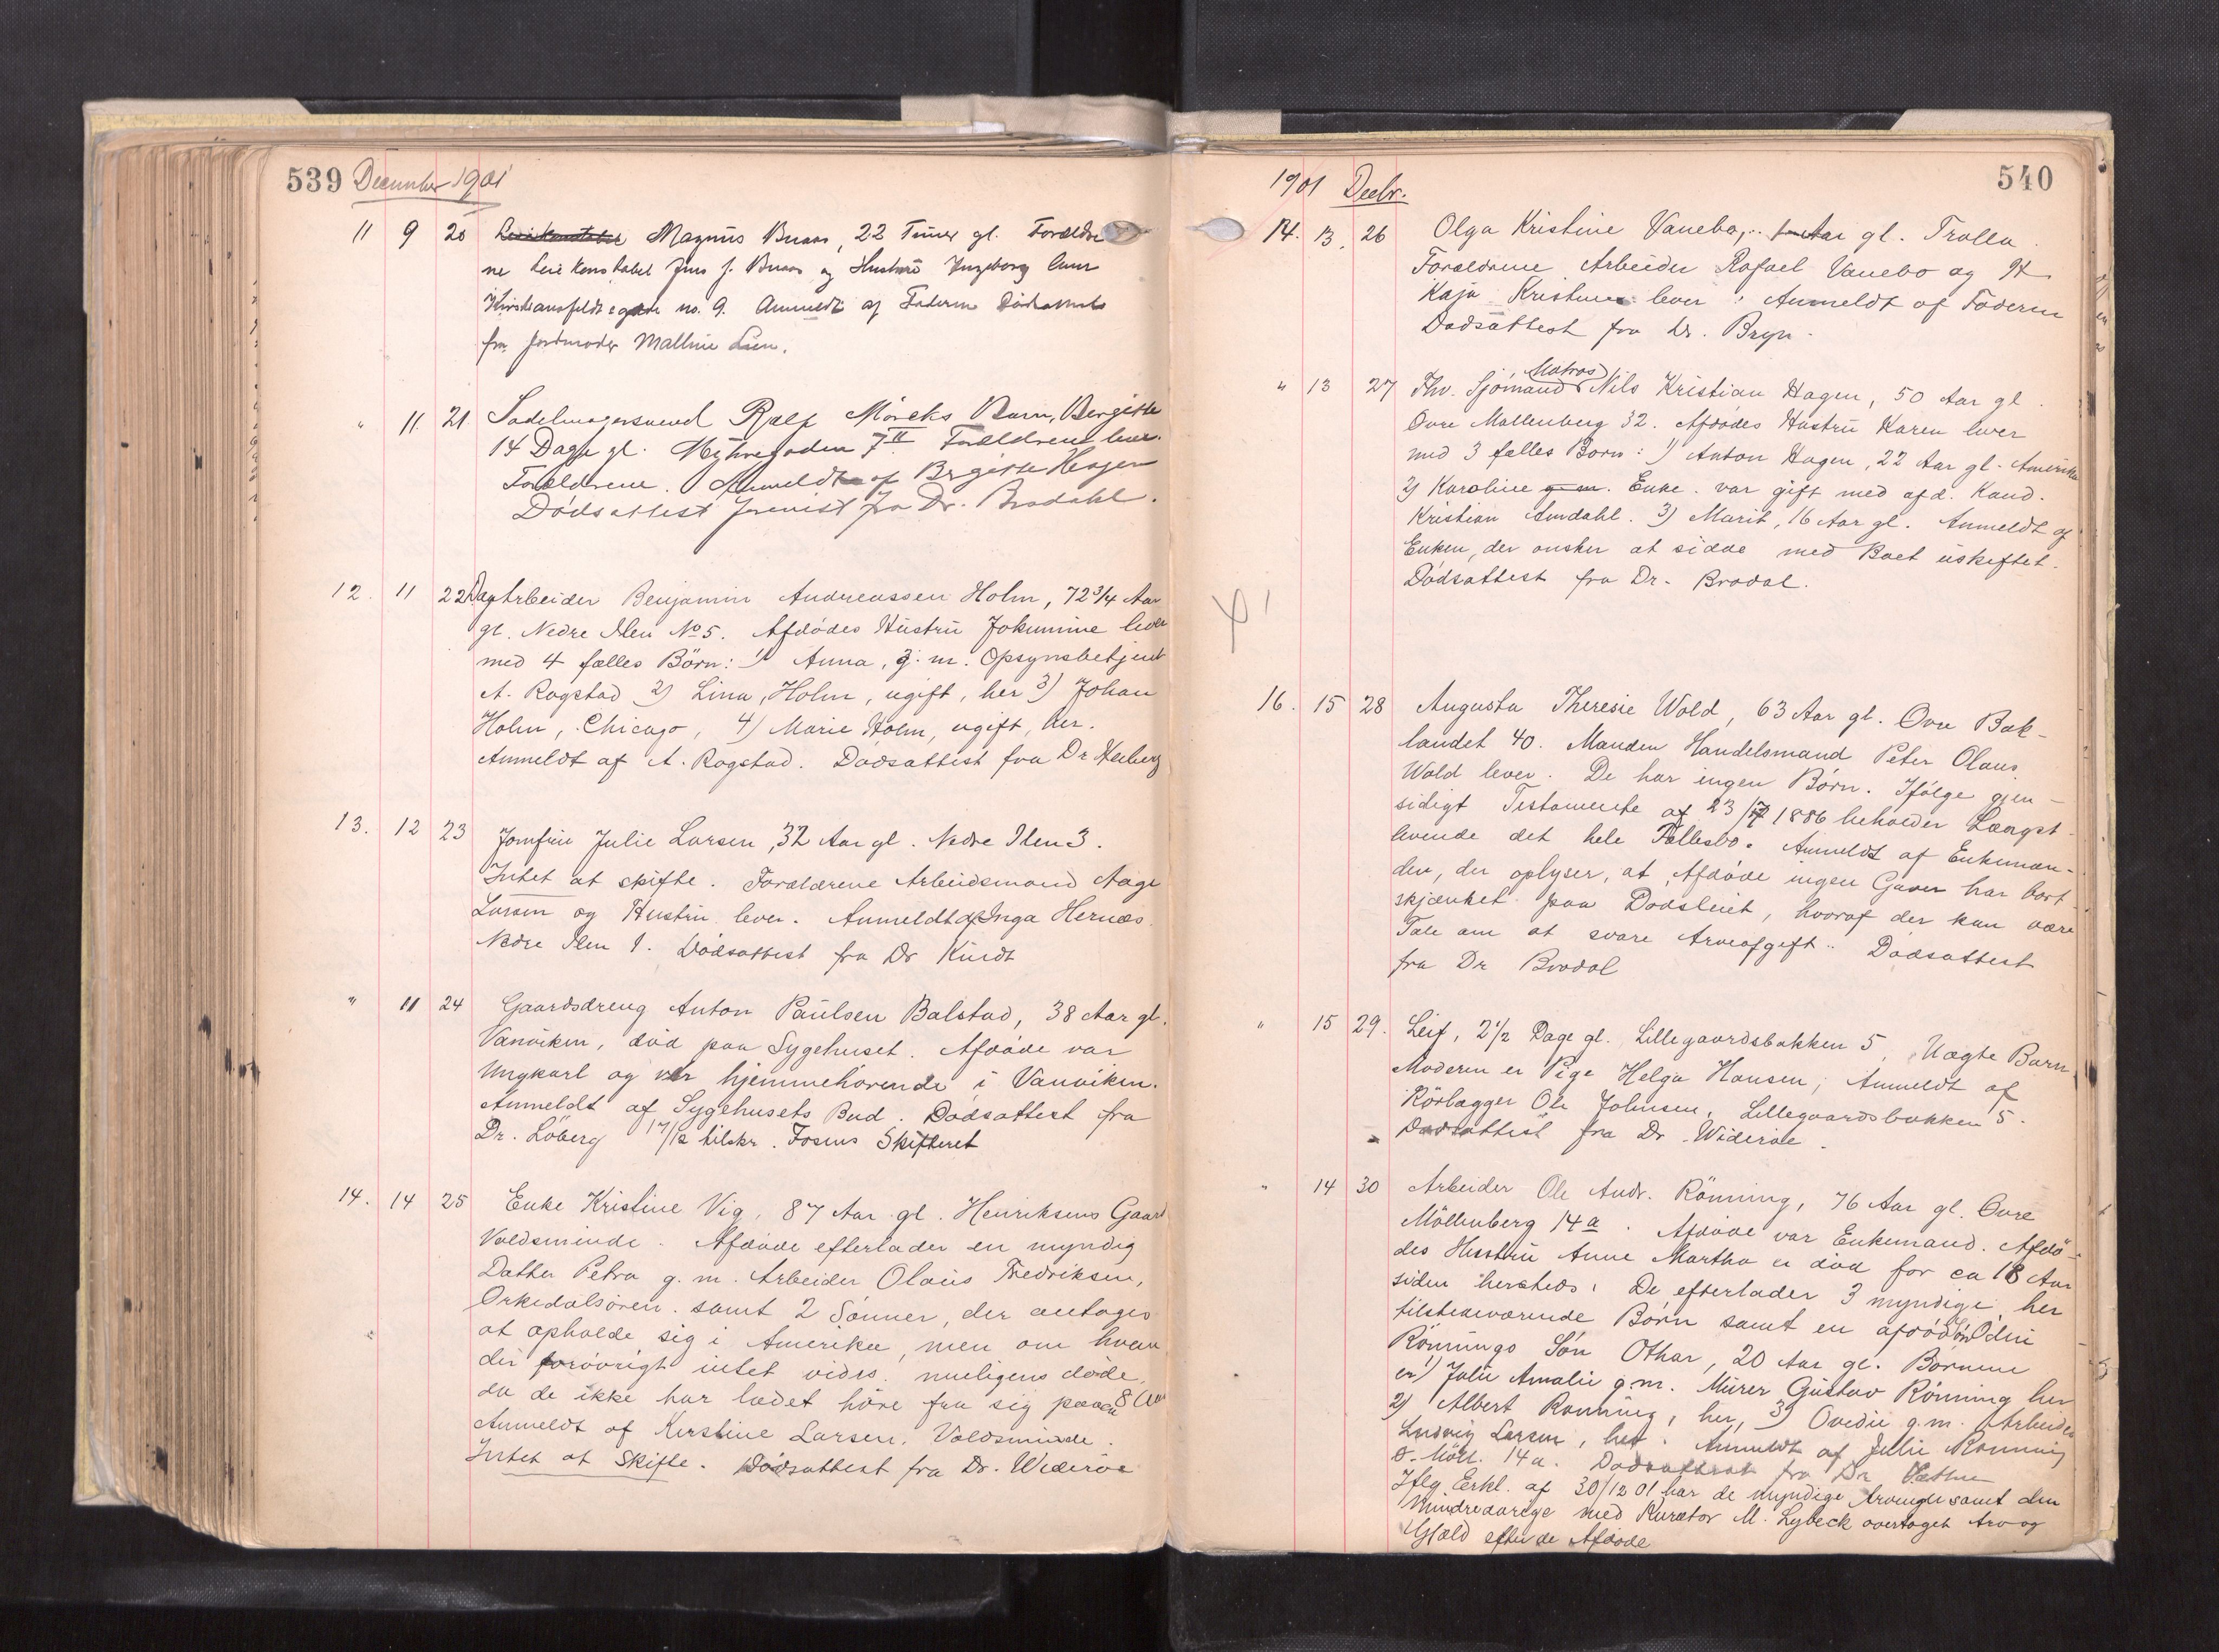 539 December 1901
11 9 20 Magnus Buaas, 22 Timer gl. Forældre
ne Leiekonstabel Jens J. Buaas og Hustru Ingeborg lever
Kristiansfeldtsgade no. 9. Anmeldt af Faderen Dödsattest
fra Jordmoder Malline Lien.
" 11. 21 Sadelmagersvend Rolf Mörchs Barn, Bergitte
14 Dage gl. 7 II Forældrene lever.
Forældrene. Anmeldt af Bergitte Hegjem
Dödsattest forevist fra Dr. Brodahl.
12. 11 22 Dagarbeider Benjamin Andreassen Holm, 72 3/4 Aar
gl. Nedre Ilen No 5. Afdödes Hustru Jokumine lever
med 4 fælles Börn: 1) Anna, g. m. Opsynsbetjent
A. Rogstad 2) Lina, Holm, ugift, her 3) Johan
Holm, Chicago, 4) Marie Holm, ugift, her.
Anmeldt af A. Rogstad. Dödsattest fra Dr Heiberg
13. 12 23 Jomfru Julie Larsen, 32 Aar gl. Nedre Ilen 3.
Intet at skifte. Forældrene Arbeidsmand Aage
Larsen og Hustru lever. Anmeldt af Inga Hernæs.
Nedre Ilen 1. Dödsattest fra Dr Kindt
" 11 24 Gaardsdreng Anton Paulsen Balstad, 38 Aar gl.
Vanviken, död paa Sygehuset. Afdöde var
Ungkarl og var hjemmehörende i Vanviken.
Anmeldt af Sygehusets Bud. Dödsattest fra
Dr. Löberg 17/12 tilskr. Fosens Skifteret
14. 14 25 Enke Kristine Vig, 87 Aar gl. Henriksens Gaard
Voldsminde. Afdöde efterlader en myndig
Datter Petra g. m. Arbeider Olaus Fredriksen,
Orkedalsören. samt 2 Sönner, der antages
at opholde sig i Amerika, men om hvem
der forövrigt intet vides. muligens döde,
da de ikke har ladet höre fra sig paa ca 8 Aar
Anmeldt af Kirstine Larsen, Voldsminde.
Intet at Skifte. Dödsattest fra Dr. Wideröe
1901 Decbr. 540
14. 13. 26 Olga Kristine Vanebo, Aar gl. Trolla.
Forældrene Arbeider Rafael Vanebo og H
Kaja Kristine lever. Anmeldt af Faderen
Dödsattest fra Dr. Bryn.
" 13 27 Fhv. Sjömand Matros Nils Kristian Hagen, 50 Aar gl.
Övre Mollenberg 32. Afdödes Hustru Karen lever
med 3 fælles Börn: 1) Anton Hagen, 22 Aar gl. Amerika
2) Karoline g. m. Enke. var gift med afd. Kand.
Kristian Amdahl. 3) Marit, 16 Aar gl. Anmeldt af
Enken, der önsker at sidde med Boet uskiftet.
Dödsattest fra Dr. Brodal.
16. 15 28 Augusta Theresie Wold, 63 Aar gl. Övre Bak-
landet 40. Manden Handelsmand Peter Olaus
Wold lever. De har ingen Börn. Ifölge gjen-
sidigt Testamente af 23/7 1886 beholder Længst-
levende det hele Fællesbo. Anmeldt af Enkeman-
den, der oplyser, at Afdöde ingen Gaver har bort-
skjænket paa Dödsleiet, hvoraf der kan være
Tale om at svare Arveafgift. Dödsattest
fra Dr Brodal
" 15 29. Leif, 2 1/2 Dage gl. Lillegaardsbakken 5, Uægte Barn,
Moderen er Pige Helga Hansen, Anmeldt af
Rörlægger Ole Johnsen, Lillegaardsbakken 5.
Dödsattest fra Dr. Wideröe.
" 14 30 Arbeider Ole Andr. Rönning, 76 Aar gl. Övre
Möllenberg 14 a. Afdöde var Enkemand. Afdö-
des Hustru Anne Martha er död for ca 18 Aar
siden hersteds. De efterlader 3 myndige her
tilstedeværende Börn samt en afdöd Sön Odin
Rönnings Sön Othar, 20 Aar gl. Börnene
er 1) Julie Amalie g. m. Murer Gustav Rönning her
2) Albert Rönning, her, 3) Ovidie g. m. Arbeider
Ludvig Larsen, her. Anmeldt af Julie Rönning
ö. Möll. 14 a. Dödsattest fra Dr
Iflg Erkl. af 30/12 01 har de myndige Arvinger samt den
Mindreaarige med Kurator M. Lybeck overtaget Arv og
Gjæld efter de Afdöde